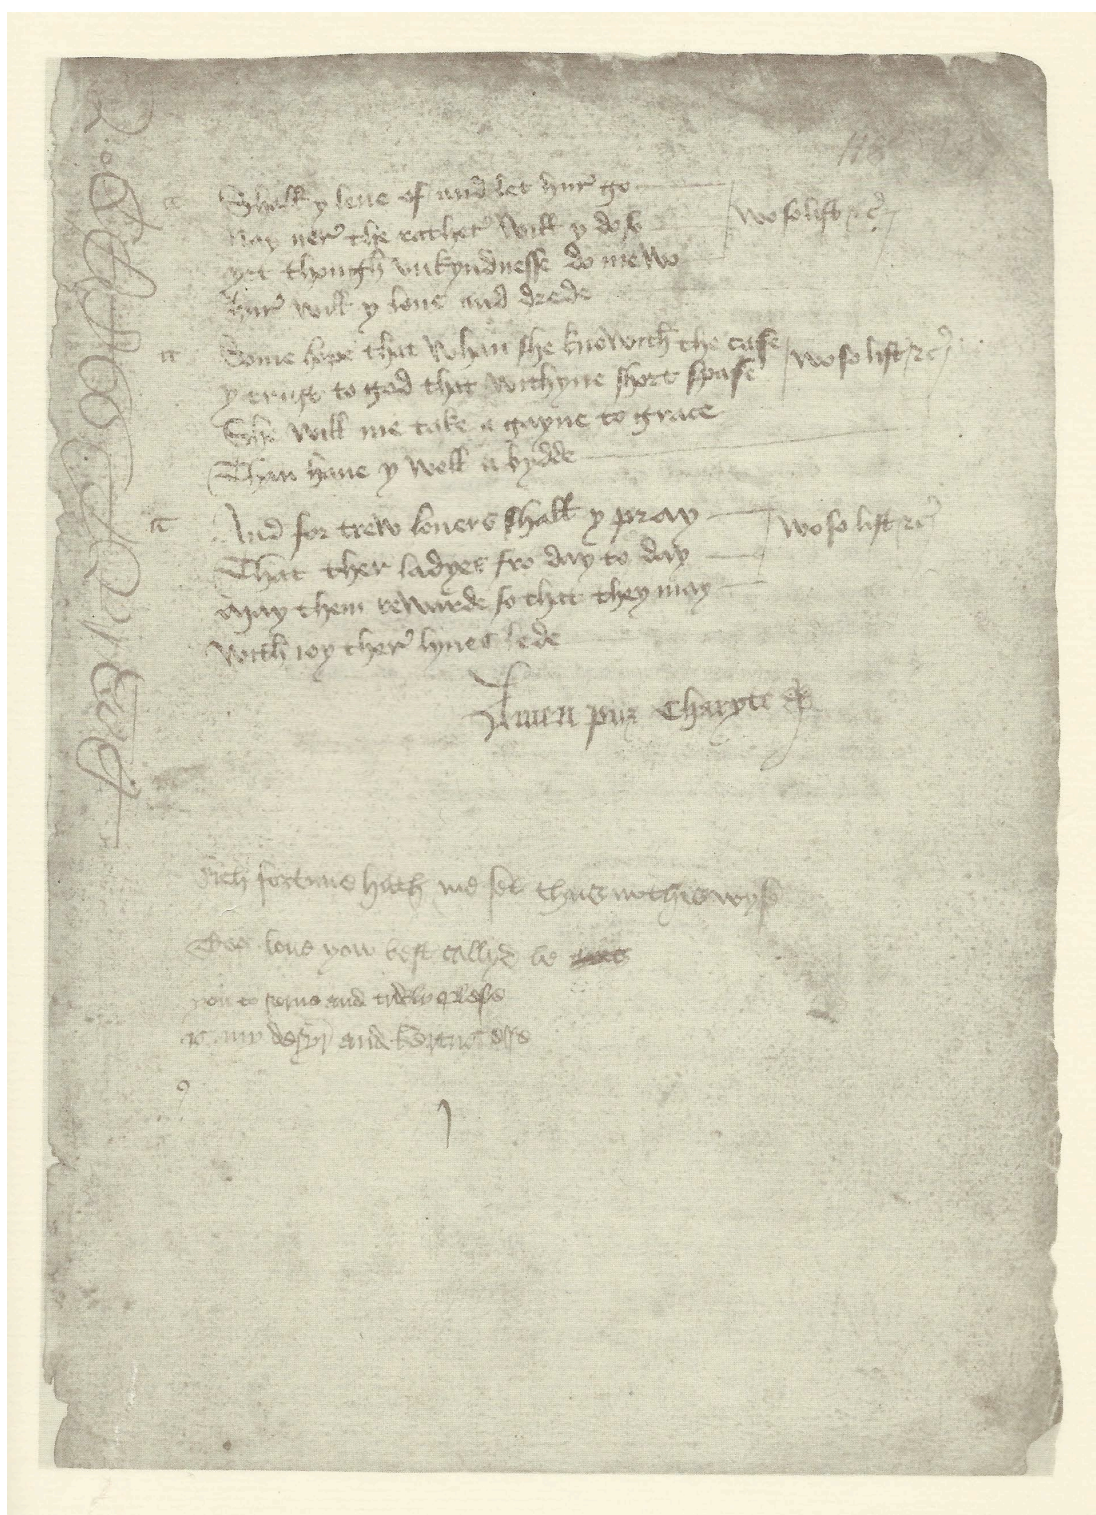 Shall y leue of and let hur go
nay ner the rather will y do so
yet though vnkyndnesse do me wo
hur will y loue and drede
wo so list &c
Some hope that whan she knowith the case
y trust to god that withyne short spase
She will me take a gayne to grace
Than haue y well a bydde
wo so list &c
And for trew louers shall y pray
That ther ladyes fro day to day
may them rewarde so that they may
with ioy ther lyues lede
wo so list &c
Amen pur Charyte
Sich fortune hath me set thus in this wyse
Too loue yow best callyd be
you to serue and trewly plese
is my desyr and hertus esse